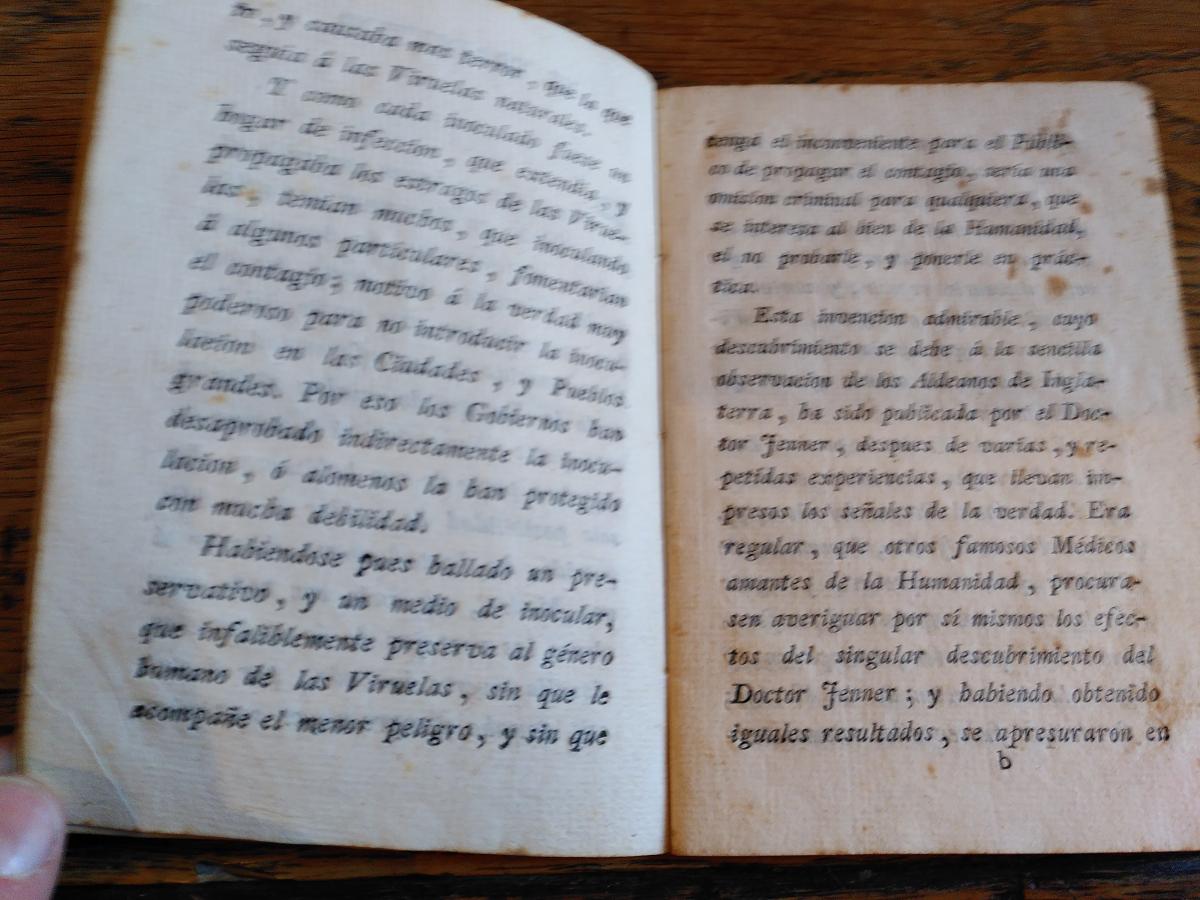 to, y causaba mas terror, que la que
seguia á las Viruelas naturales.
Y como cada inoculado fuese un
hogar de infeccion, que extendia, y
propagaba los estragos de las Virue-
las, temian muchos, que inoculando
á algunos particulares, fomentarian
el contagio; motivo á la verdad muy
poderoso para no introducir la inocu-
lacion en las Ciudades, y Pueblos
grandes. Por eso los Gobiernos han
desaprobado indirectamente la inocu-
lacion, ó alomenos la han protegido
con mucha debilidad.
Habiendose pues hallado un pre-
servativo, y un medio de inocular,
que infaliblemente preserva al género
humano de las Viruelas, sin que le
acompañe el menor peligro, y sin que
tenga el inconveniente para el Públi-
co de propagar el contagio, sería una
omision criminal para qualquiera, que
se interesa al bien de la Humanidad,
el no probarle, y ponerle en prác-
tica.
Esta invencion admirable, cuyo
descubrimiento se debe á la sencilla
observacion de los Aldeanos de Ingla-
terra, ha sido publicada por el Doc-
tor Jenner, despues de varias, y re-
petidas experiencias, que llevan im-
presos los señales de la verdad. Era
regular, que otros famosos Médicos
amantes de la Humanidad, procura-
sen averiguar por sí mismos los efec-
tos del singular descubrimiento del
Doctor Jenner; y habiendo obtenido
iguales resultados, se apresuraron en
b